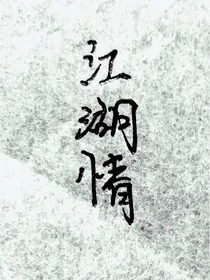 江湖情